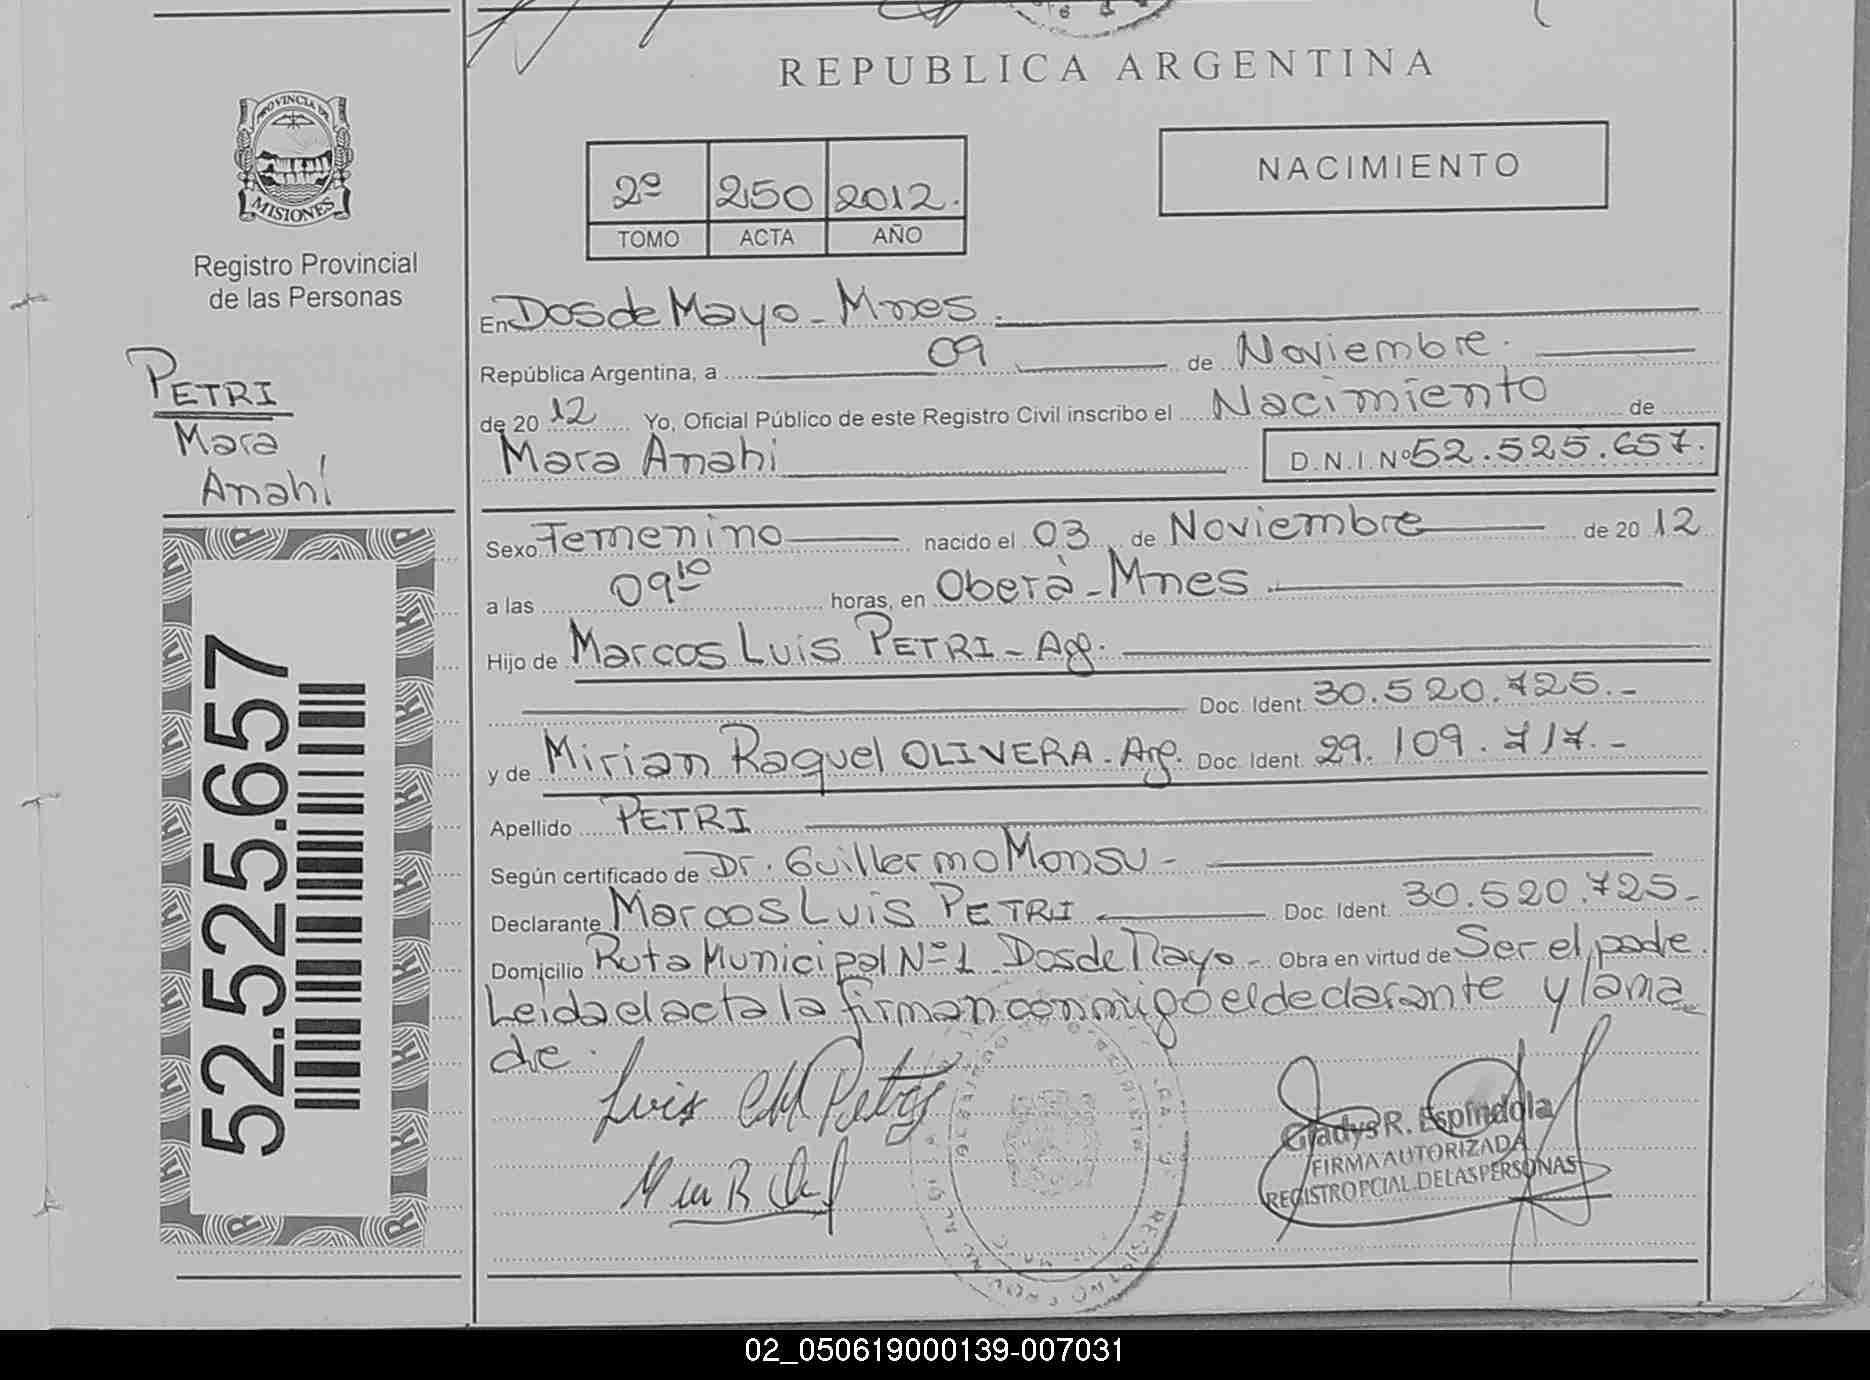 REPUBLICA ARGENTINA
PROVINCIA DE
MISIONES
Registro Provincial
de las Personas
2º 250 2012.
TOMO ACTA AÑO
NACIMIENTO
PETRI
Mara
Anahí
52.525.657
En Dos de Mayo - Mnes.
República Argentina, a 09 de Noviembre.
de 20 12 Yo, Oficial Público de este Registro Civil inscribo el Nacimiento de
Mara Anahi D.N.I.Nº 52.525.657.
Sexo Femenino nacido el 03 de Noviembre de 20 12
a las 09 10 horas, en Oberà - Mnes.
Hijo de Marcos Luis PETRI - Arg.
Doc. Ident. 30.520.725.-
y de Mirian Raquel OLIVERA - Arg. Doc. Ident. 29.109.717.-
Apellido PETRI
Según certificado de Dr. Guillermo Monsu -
Declarante Marcos Luis PETRI Doc. Ident. 30.520.725-
Domicilio Ruta Municipal Nº 1 - Dos de Mayo - Obra en virtud de Ser el padre.
Leida el acta la firman conmigo el declarante y la ma
dre.
Luis
Gladys R. Espíndola
FIRMA AUTORIZADA
REGISTRO PCIAL. DE LAS PERSONAS
02_050619000139-007031